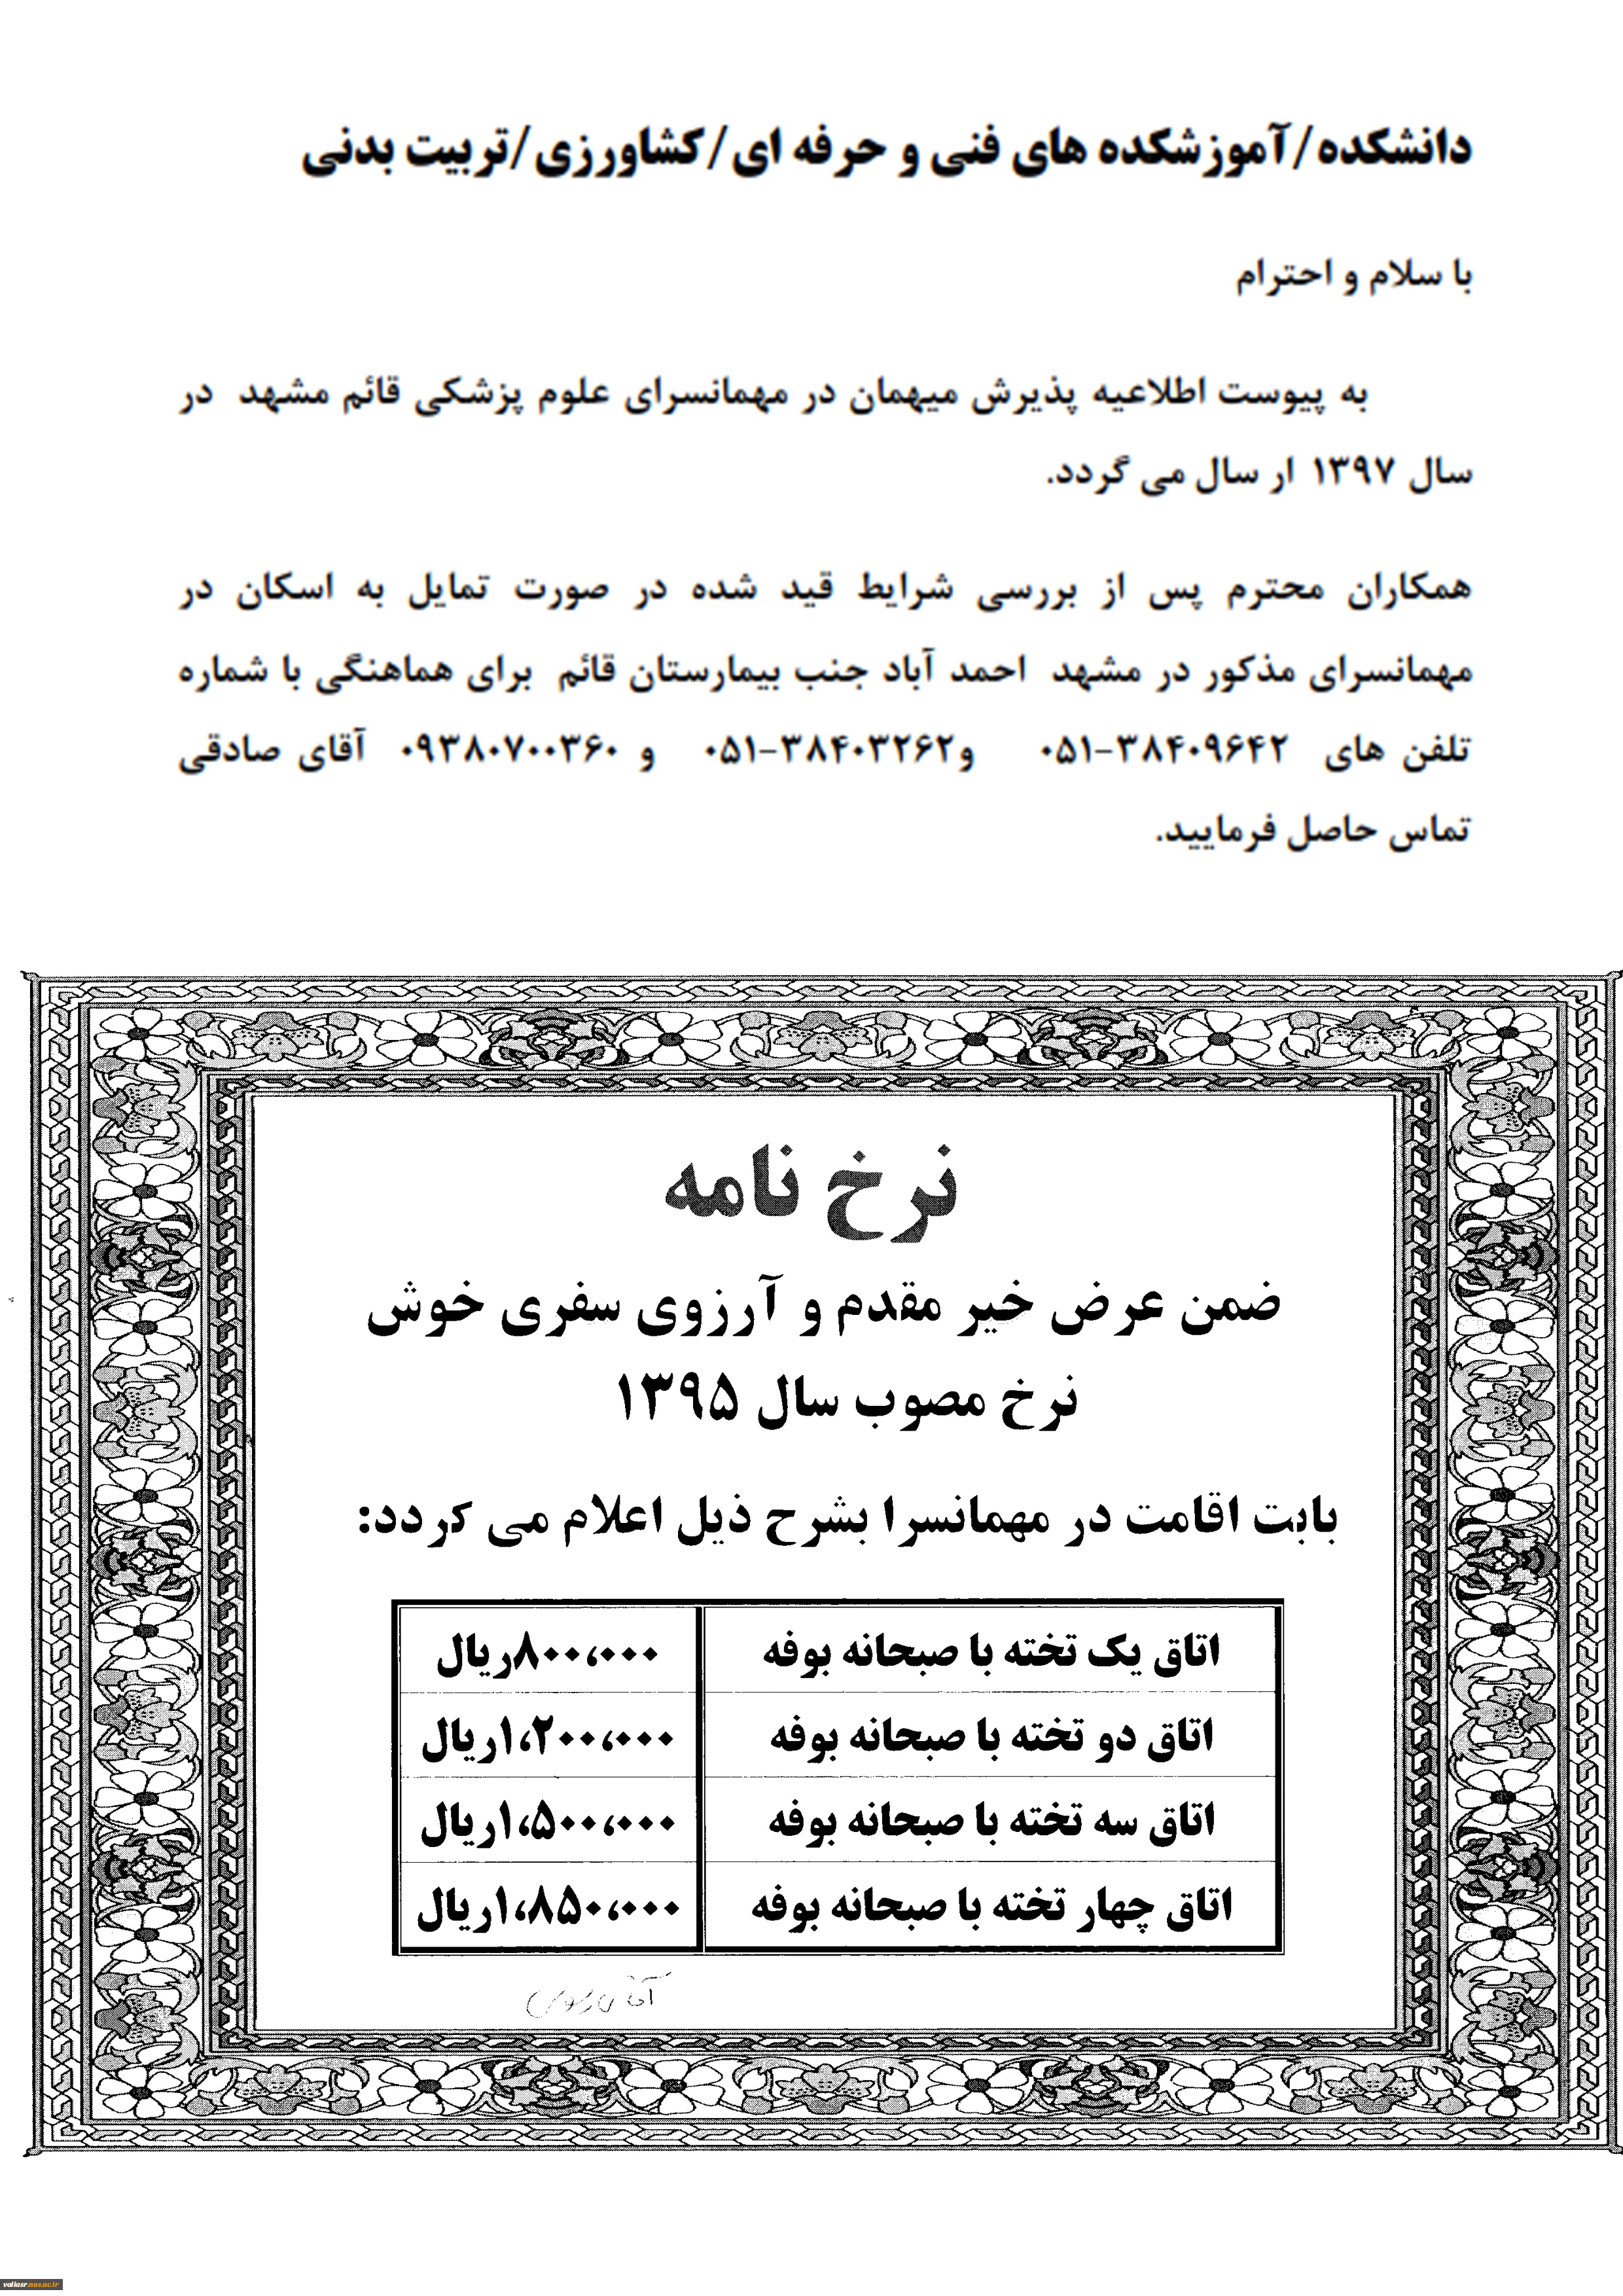 دانشکده/آموزشکده های فنی و حرفه ای/کشاورزی/تربیت بدنی
با سلام و احترام
به پیوست اطلاعیه پذیرش میهمان در مهمانسرای علوم پزشکی قائم مشهد در
سال ۱۳۹۷ ار سال می گردد.
همکاران محترم پس از بررسی شرایط قید شده در صورت تمایل به اسکان در
مهمانسرای مذکور در مشهد احمد آباد جنب بیمارستان قائم برای هماهنگی با شماره
تلفن های ۳۸۴۰۹۶۴۲-۰۵۱ و۳۸۴۰۳۲۶۲-۰۵۱ و ۰۹۳۸۰۷۰۰۳۶۰ آقای صادقی
تماس حاصل فرمایید.
نرخ نامه
ضمن عرض خیر مقدم و آرزوی سفری خوش
نرخ مصوب سال ۱۳۹۵
بابت اقامت در مهمانسرا بشرح ذیل اعلام می گردد:
اتاق یک تخته با صبحانه بوفه ۸۰۰،۰۰۰ریال
اتاق دو تخته با صبحانه بوفه ۱،۲۰۰،۰۰۰ریال
اتاق سه تخته با صبحانه بوفه ۱،۵۰۰،۰۰۰ریال
اتاق چهار تخته با صبحانه بوفه ۱،۸۵۰،۰۰۰ریال
valiasr.nus.ac.ir